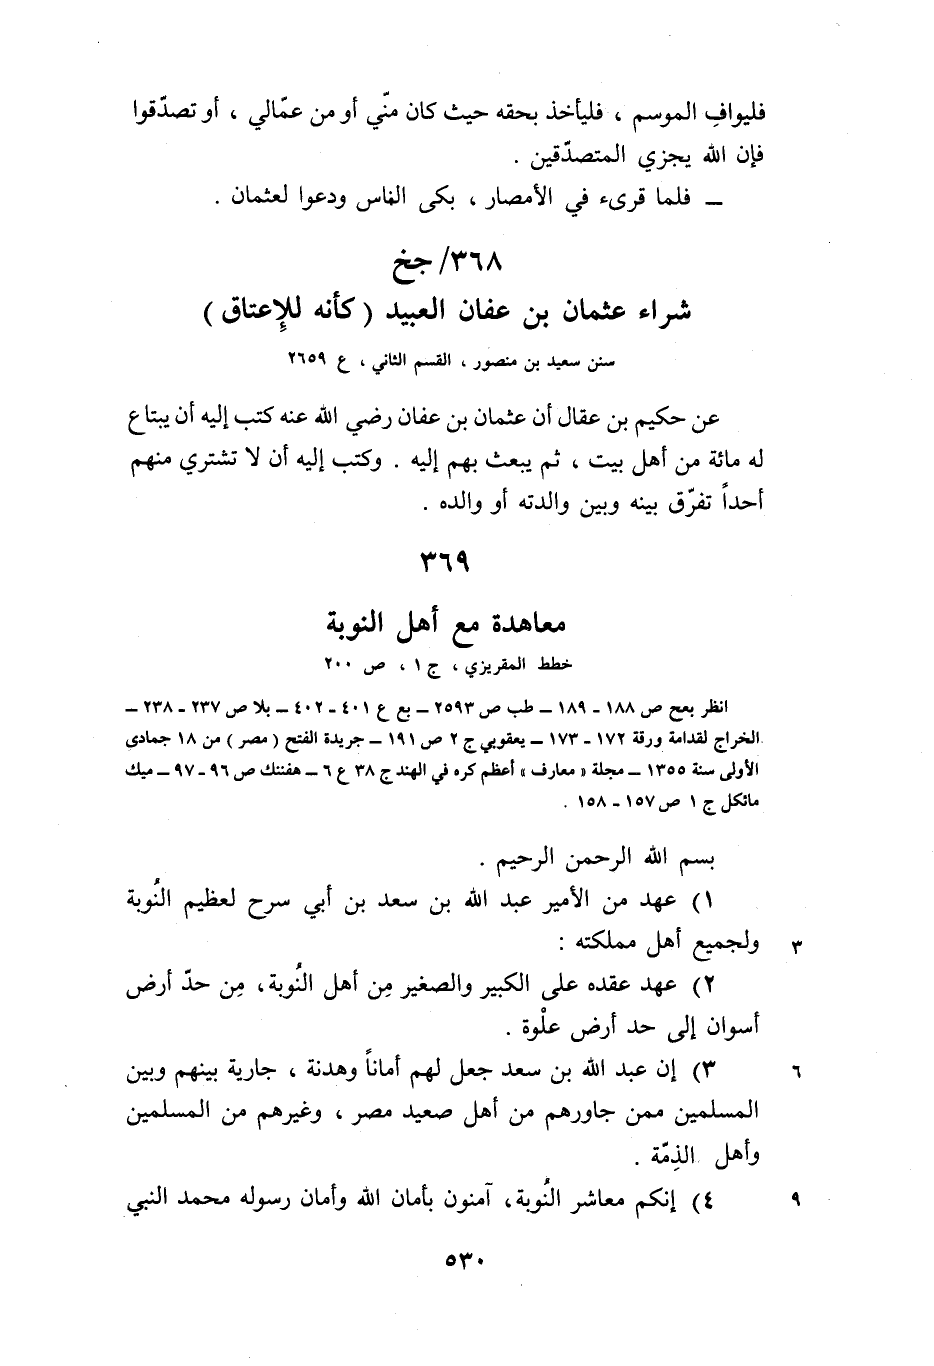 فليوافِ الموسم ، فليأخذ بحقه حيث كان منّي أو من عمّالي ، أو تصدّقوا
فإن الله يجزي المتصدّقين .
ــ فلما قرىء في الأمصار ، بكى الناس ودعوا لعثمان .
٣٦٨/جخ
شراء عثمان بن عفان العبيد ( كأنه للإعتاق )
سنن سعيد بن منصور ، القسم الثاني ، ع ٢٦٥٩
عن حكيم بن عقال أن عثمان بن عفان رضي الله عنه كتب إليه أن يبتاع
له مائة من أهل بيت ، ثم يبعث بهم إليه . وكتب إليه أن لا تشتري منهم
أحداً تفرّق بينه وبين والدته أو والده .
٣٦٩
معاهدة مع أهل النوبة
خطط المقريزي ، ج ١ ، ص ٢٠٠
انظر بعح ص ١٨٨ - ١٨٩ ــ طب ص ٢٥٩٣ ــ بع ع ٤٠١ - ٤٠٢ ــ بلا ص ٢٣٧ - ٢٣٨ ــ
الخراج لقدامة ورقة ١٧٢ - ١٧٣ ــ يعقوبي ج ٢ ص ١٩١ ــ جريدة الفتح ( مصر ) من ١٨ جمادى
الأولى سنة ١٣٥٥ ــ مجلة « معارف » أعظم كره في الهند ج ٣٨ ع ٦ ــ هفننك ص ٩٦ - ٩٧ ــ ميك
مائكل ج ١ ص ١٥٧ - ١٥٨ .
بسم الله الرحمن الرحيم .
١) عهد من الأمير عبد الله بن سعد بن أبي سرح لعظيم النُوبة
٣ ولجميع أهل مملكته :
٢) عهد عقده على الكبير والصغير مِن أهل النُوبة، مِن حدّ أرض
أسوان إلى حد أرض علْوة .
٦ ٣) إن عبد الله بن سعد جعل لهم أماناً وهدنة ، جارية بينهم وبين
المسلمين ممن جاورهم من أهل صعيد مصر ، وغيرهم من المسلمين
وأهل الذِمّة .
٩ ٤) إنكم معاشر النُوبة، آمنون بأمان الله وأمان رسوله محمد النبي
٥٣٠